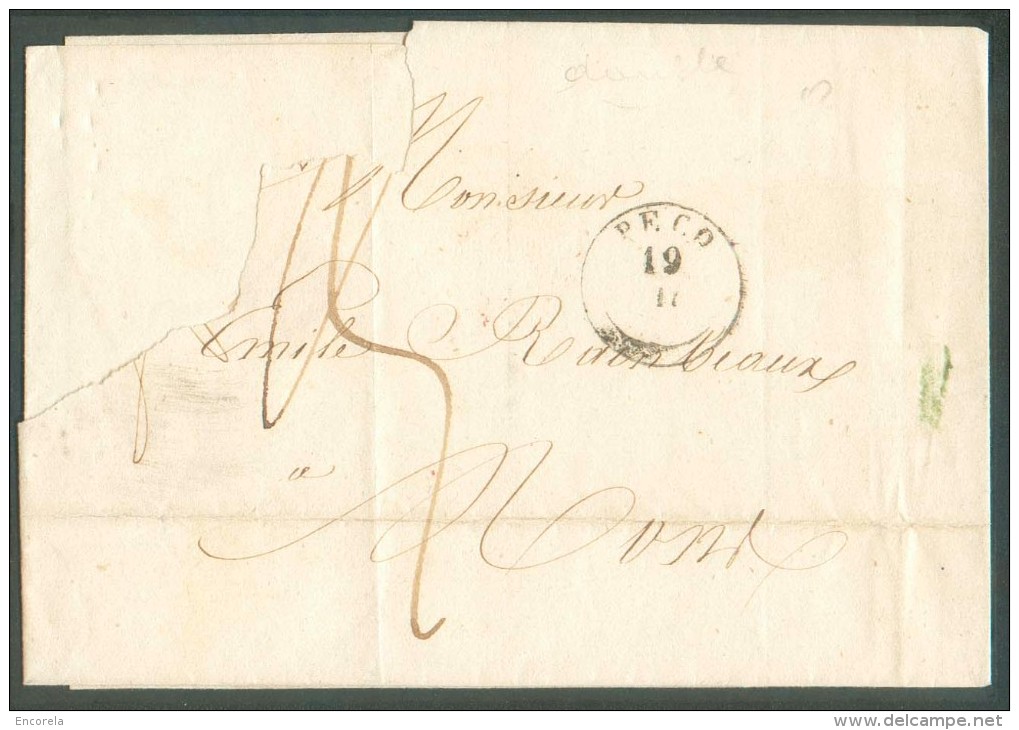 double
Monsieur
PECQ
19
11
Emile Rainbeaux
a
Mons
Encorela
delcampe.net